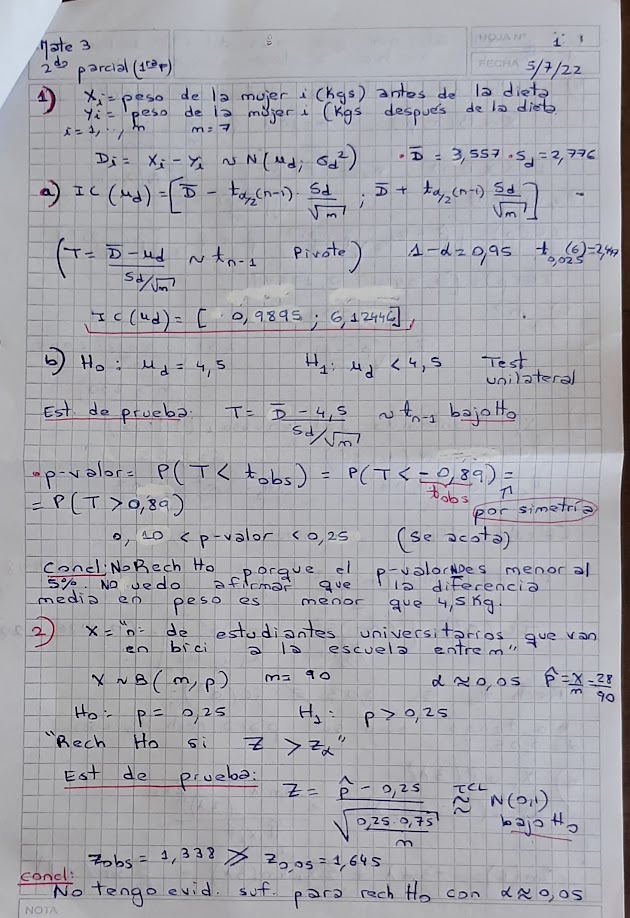 HOJA Nº 1
Mate 3
2do parcial (1ra F)
FECHA 5/7/22
1) Xi = peso de la mujer i (Kgs) antes de la dieta
Yi = peso de la mujer i (Kgs después de la dieta
i = 1, .., n n = 7
Di = Xi - Yi ~ N(μd; σd²) • D̄ = 3,557 • Sd = 2,776
a) IC(μd) = [D̄ - tα/2(n-1) · Sd/√n ; D̄ + tα/2(n-1) Sd/√n]
(T = (D̄ - μd)/(Sd/√n) ~ tn-1 Pivote) 1-α = 0,95 t0,025(6) = 2,447
IC(μd) = [ 0,9895 ; 6,1244]
b) H0: μd = 4,5 H1: μd < 4,5 Test
unilateral
Est. de prueba: T = (D̄ - 4,5)/(Sd/√n) ~ tn-1 bajo H0
• p-valor = P(T < tobs) = P(T < -0,89) =
tobs
= P(T > 0,89) por simetría
0,10 < p-valor < 0,25 (se acota)
Concl: No Rech H0 porque el p-valor NO es menor al
5%. No uedo afirmar que la diferencia
media en peso es menor que 4,5 Kg.
2) X = "nº de estudiantes universitarios que van
en bici a la escuela entre n"
X ~ B(n, p) n = 90 α ≈ 0,05 p̂ = X/n = 28/90
H0: p = 0,25 H1: p > 0,25
"Rech H0 si Z > Zα"
Est de prueba: Z = (p̂ - 0,25)/√(0,25·0,75/n) TCL ≈ N(0,1)
bajo H0
Zobs = 1,338 ≯ Z0,05 = 1,645
concl:
No tengo evid. suf. para rech H0 con α ≈ 0,05
NOTA